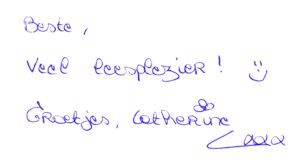 Beste,
Veel leesplezier! :)
Groetjes, Catherine